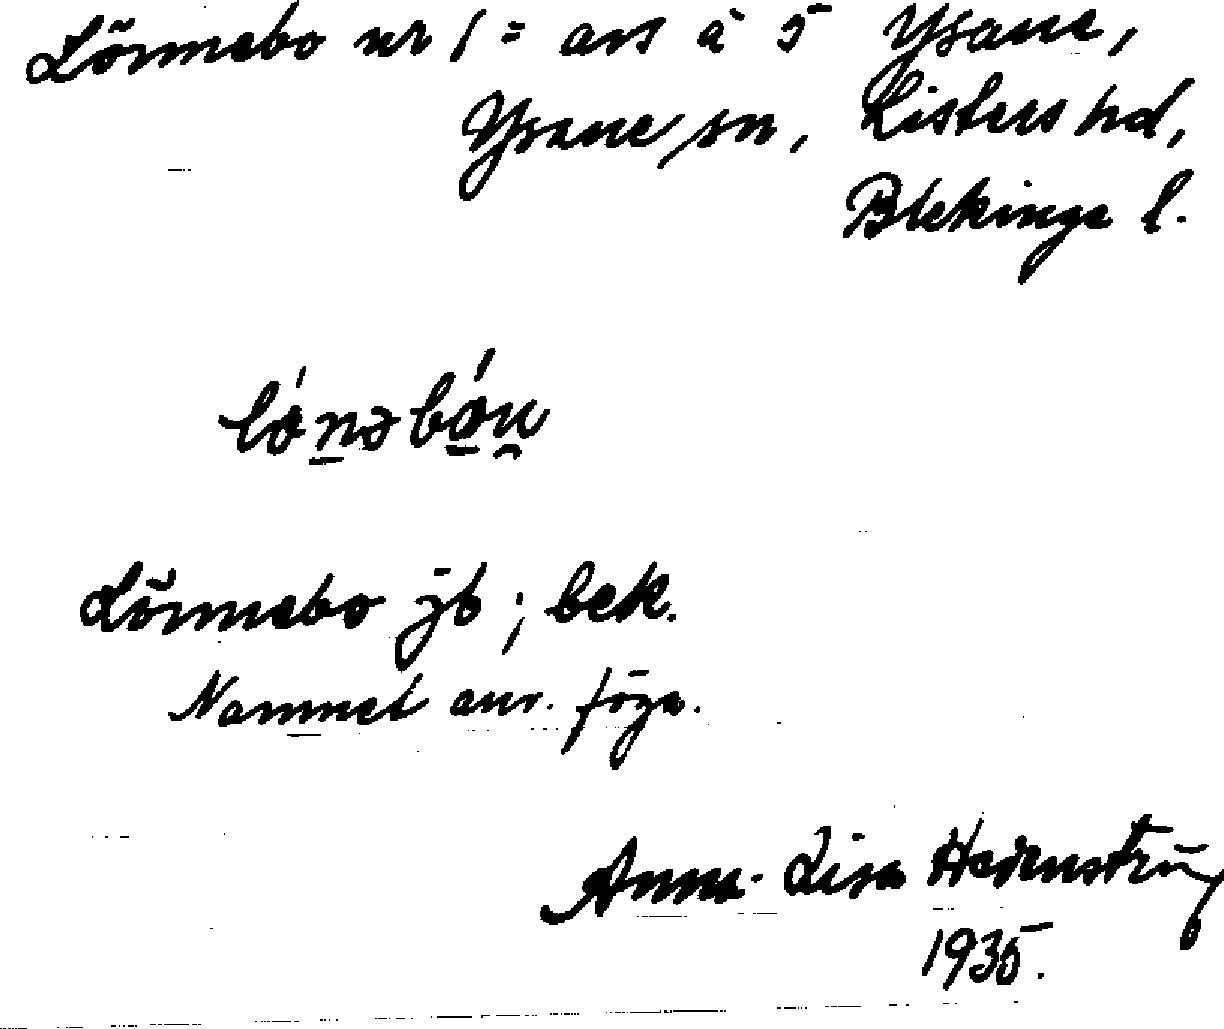 Lönnebo nr 1 = avs à 5 Ysane,
Ysane sn, Listers hd,
Blekinge l.
Lönnebo jb; bek.
Namnet anv. föga.
Anna-Lisa
1935.